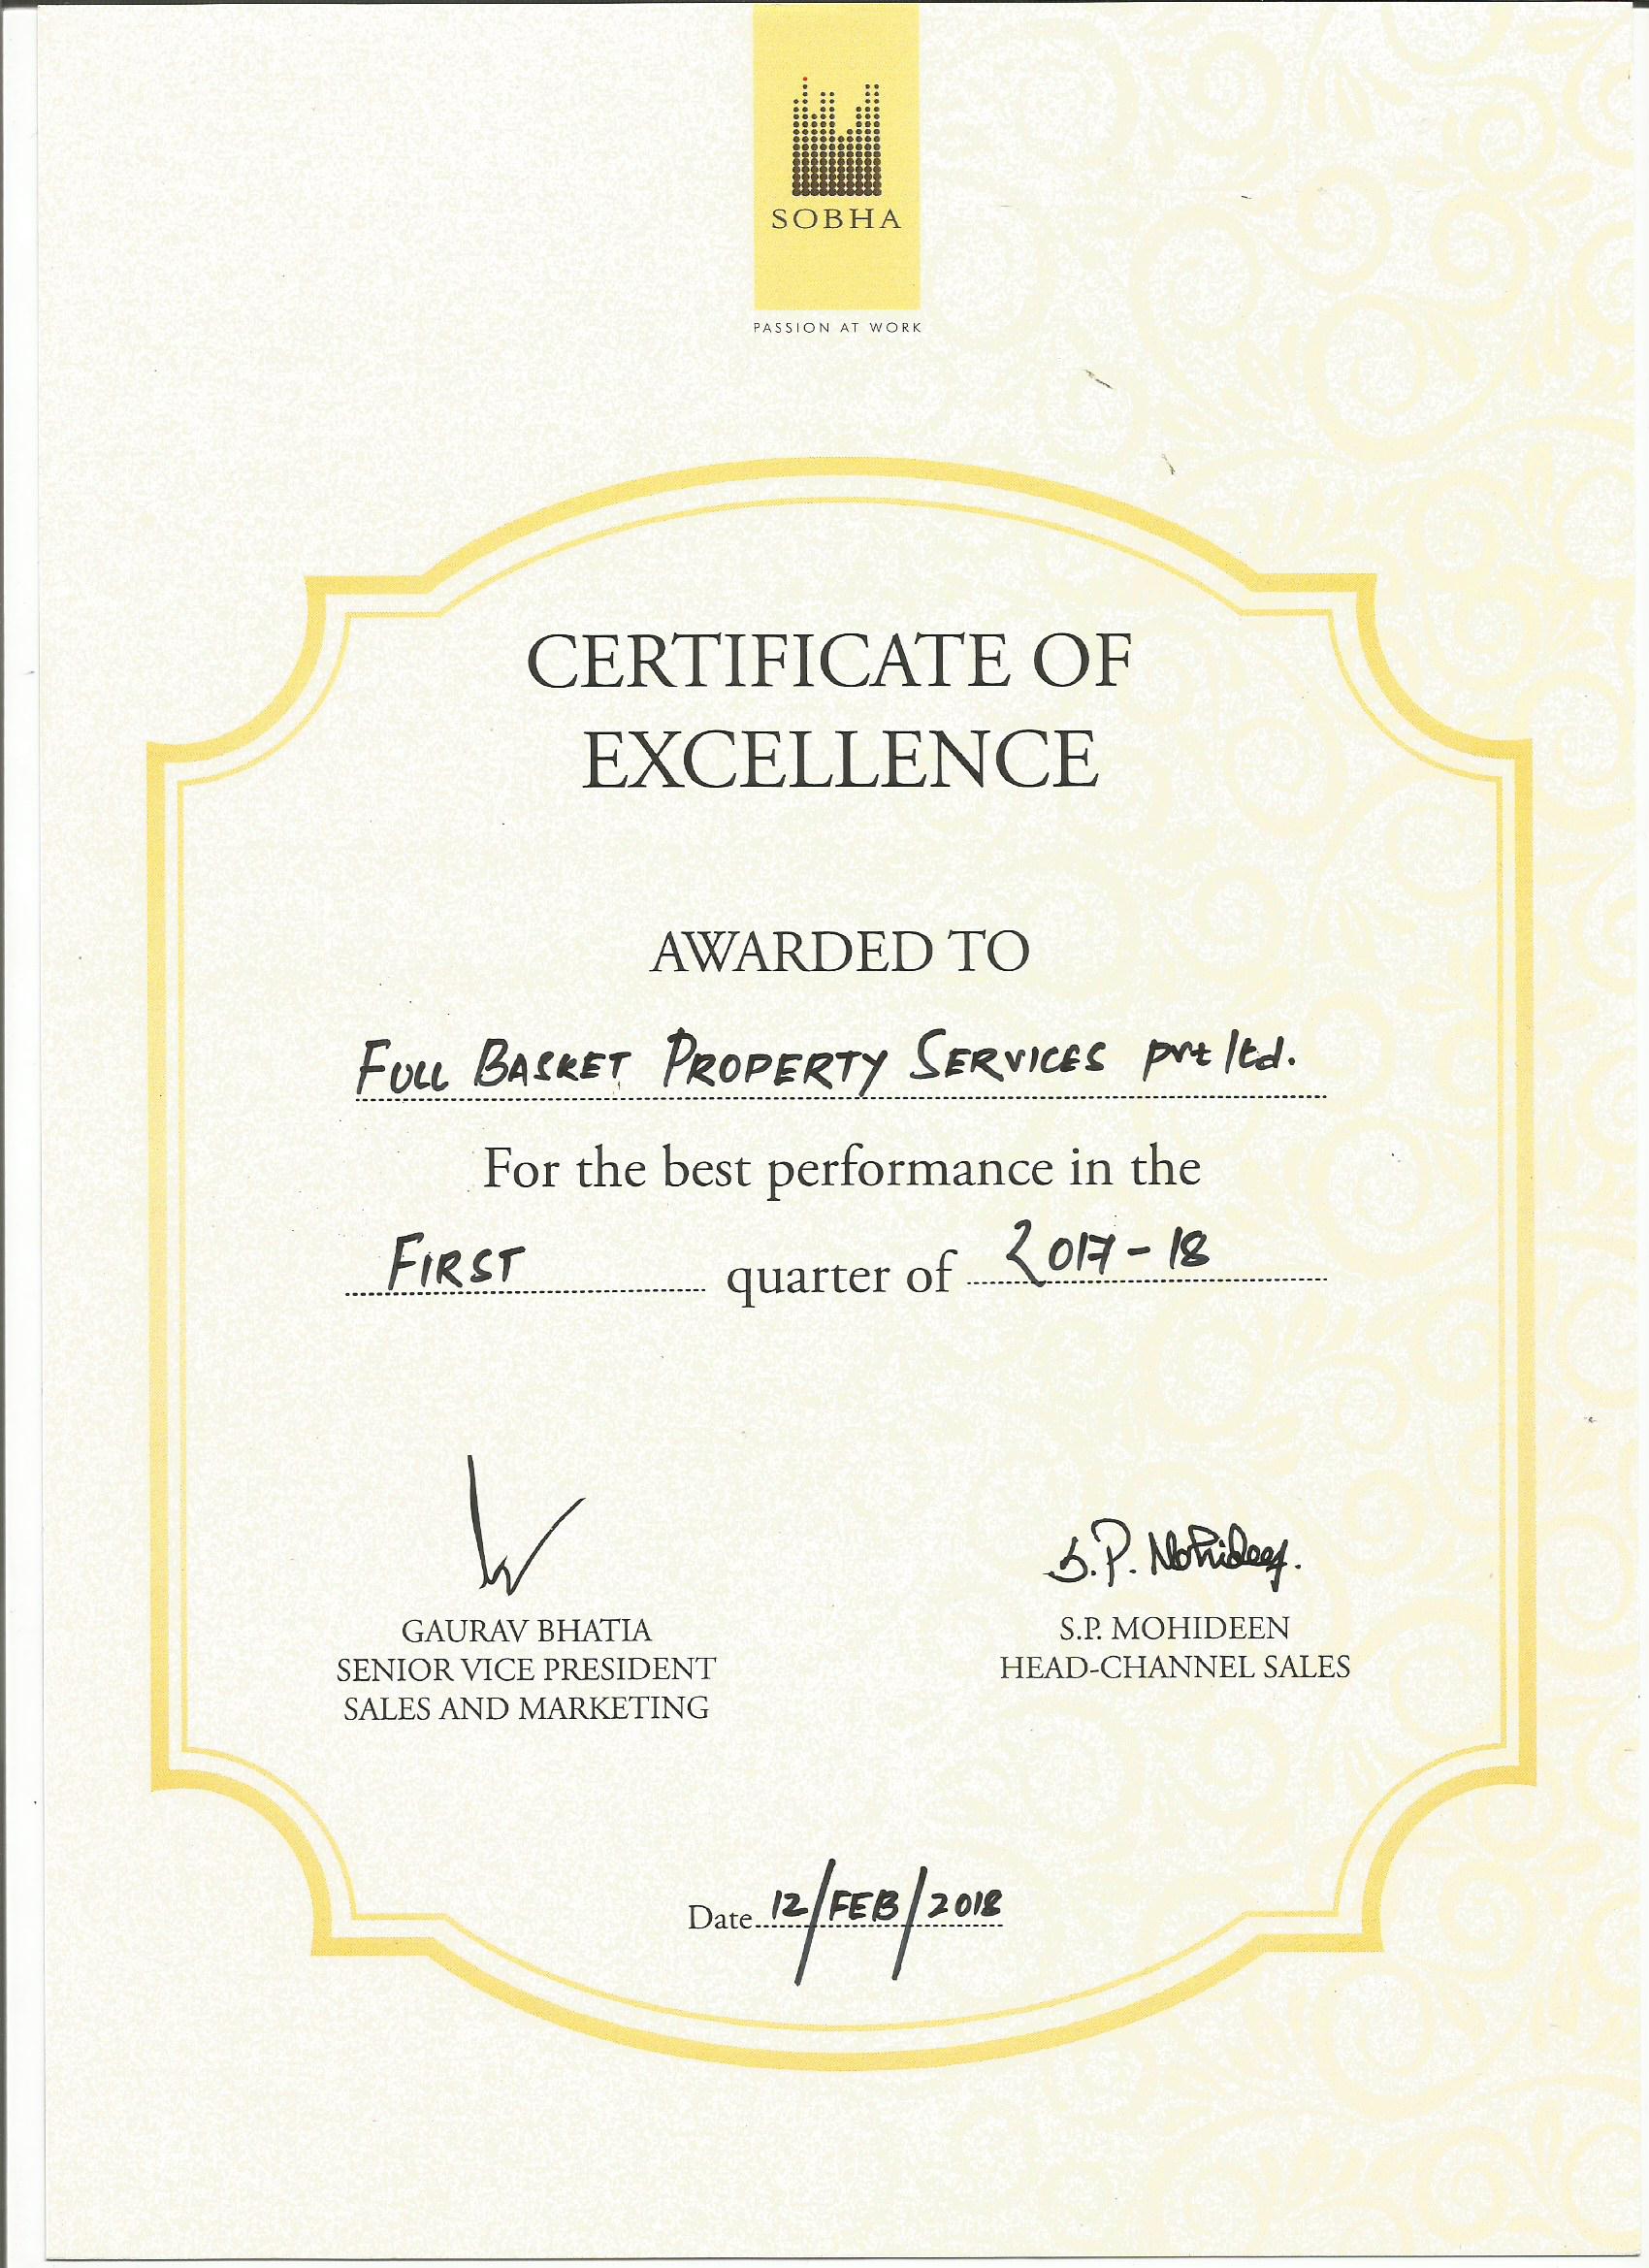 SOBHA
PASSION AT WORK
CERTIFICATE OF
EXCELLENCE
AWARDED TO
FULL BASKET PROPERTY SERVICES pvt ltd.
For the best performance in the
FIRST quarter of 2017-18
S.P. Mohideen.
GAURAV BHATIA
SENIOR VICE PRESIDENT
SALES AND MARKETING
S.P. MOHIDEEN
HEAD-CHANNEL SALES
Date 12/FEB/2018